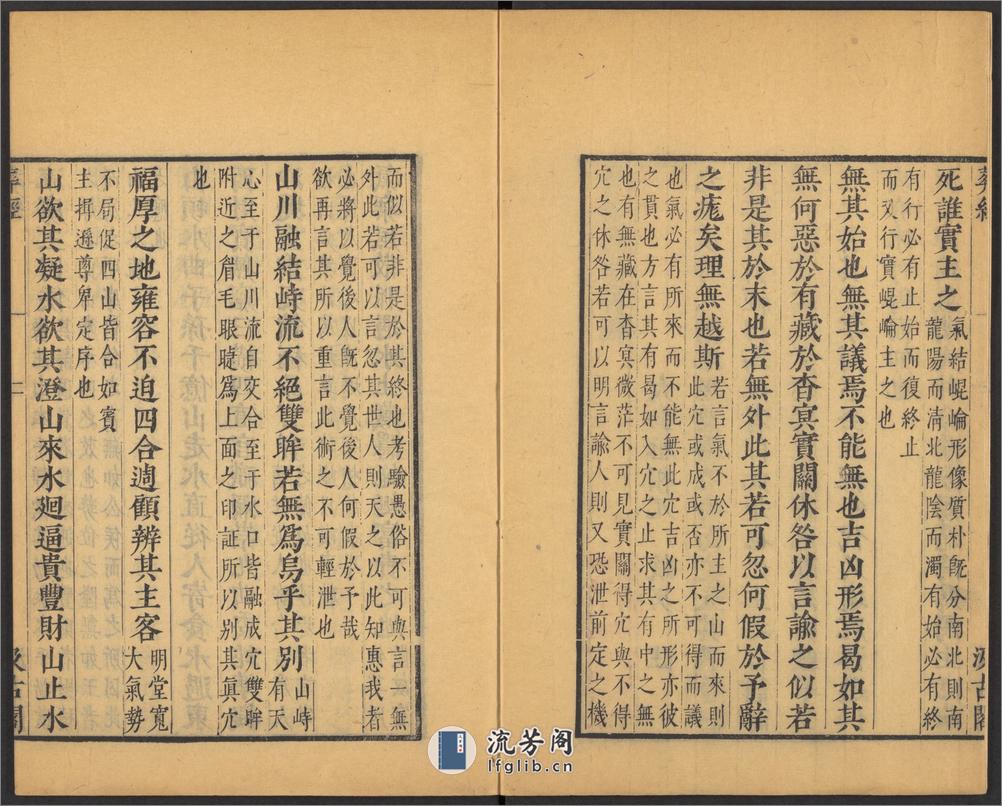 葬經
汲古閣
死誰實主之
氣結崐崘形像質朴旣分南北則南
龍陽而清北龍陰而濁有始必有終
有行必有止始而復終止
而又行實崐崘主之也
無其始也無其議焉不能無也吉凶形焉曷如其
無何惡於有藏於杳冥實關休咎以言諭之似若
非是其於末也若無外此其若可忽何假於予辭
之疣矣理無越斯
若言氣不於所主之山而來則
此宂或成或否亦不得而議
也氣必有所來而不能無此宂吉凶之所形亦彼
之貫也方言其有曷如入宂之止求其有中之無
也有無藏在杳冥微茫不可見實關得宂與不得
宂之休咎若可以明言諭人則又恐泄前定之機
而似若非是於其終也考驗愚俗不可與言又無
外此若可以言忽其世人則天之以此知惠我者
必將以覺後人旣不覺後人何假於予哉
欲再言其所以重言此術之不可輕泄也
山川融結峙流不絕雙眸若無爲烏乎其别
山峙
有天
心至于山川流自交合至于水口皆融成宂雙眸
附近之睂毛眼睫爲上面之印証所以别其眞宂
也
福厚之地雍容不迫四合週顧辨其主客
明堂寬
大氣勢
不局促四山皆合如賓
主揖遜尊卑定序也
山欲其凝水欲其澄山來水廻逼貴豐財山止水
葬經
二
汲古閣
流芳阁
lfglib.cn